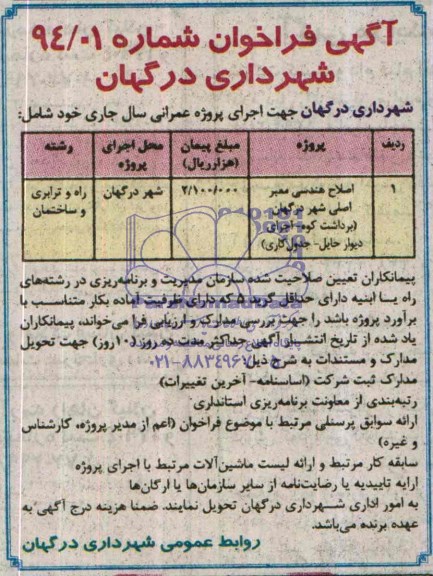 آگهی فراخوان شماره ۹۴/۰۱
شهرداری درگهان
شهرداری درگهان جهت اجرای پروژه عمرانی سال جاری خود شامل:
ردیف پروژه مبلغ پیمان (هزارریال) محل اجرای پروژه رشته
۱ اصلاح هندسی معبر اصلی شهر درگهان (برداشت کوه- اجرای دیوار حایل- جدول‌گذاری) ۲/۱۰۰/۰۰۰ شهر درگهان راه و ترابری و ساختمان
پیمانکاران تعیین صلاحیت شده سازمان مدیریت و برنامه‌ریزی در رشته‌های
راه یا ابنیه دارای حداقل گرید ۵ که دارای ظرفیت آماده بکار متناسب با
برآورد پروژه باشد را جهت بررسی مدارک و ارزیابی فرا می‌خواند، پیمانکاران
یاد شده از تاریخ انتشار آگهی حداکثر مدت ده روز (۱۰روز) جهت تحویل
مدارک و مستندات به شرح ذیل:
۰۲۱-۸۸۳۴۹۶۷۰
مدارک ثبت شرکت (اساسنامه- آخرین تغییرات)
رتبه‌بندی از معاونت برنامه‌ریزی استانداری
ارائه سوابق پرسنلی مرتبط با موضوع فراخوان (اعم از مدیر پروژه، کارشناس
و غیره)
سابقه کار مرتبط و ارائه لیست ماشین‌آلات مرتبط با اجرای پروژه
ارایه تاییدیه یا رضایت‌نامه از سایر سازمان‌ها یا ارگان‌ها
به امور اداری شهرداری درگهان تحویل نمایند. ضمنا هزینه درج آگهی به
عهده برنده می‌باشد.
روابط عمومی شهرداری درگهان